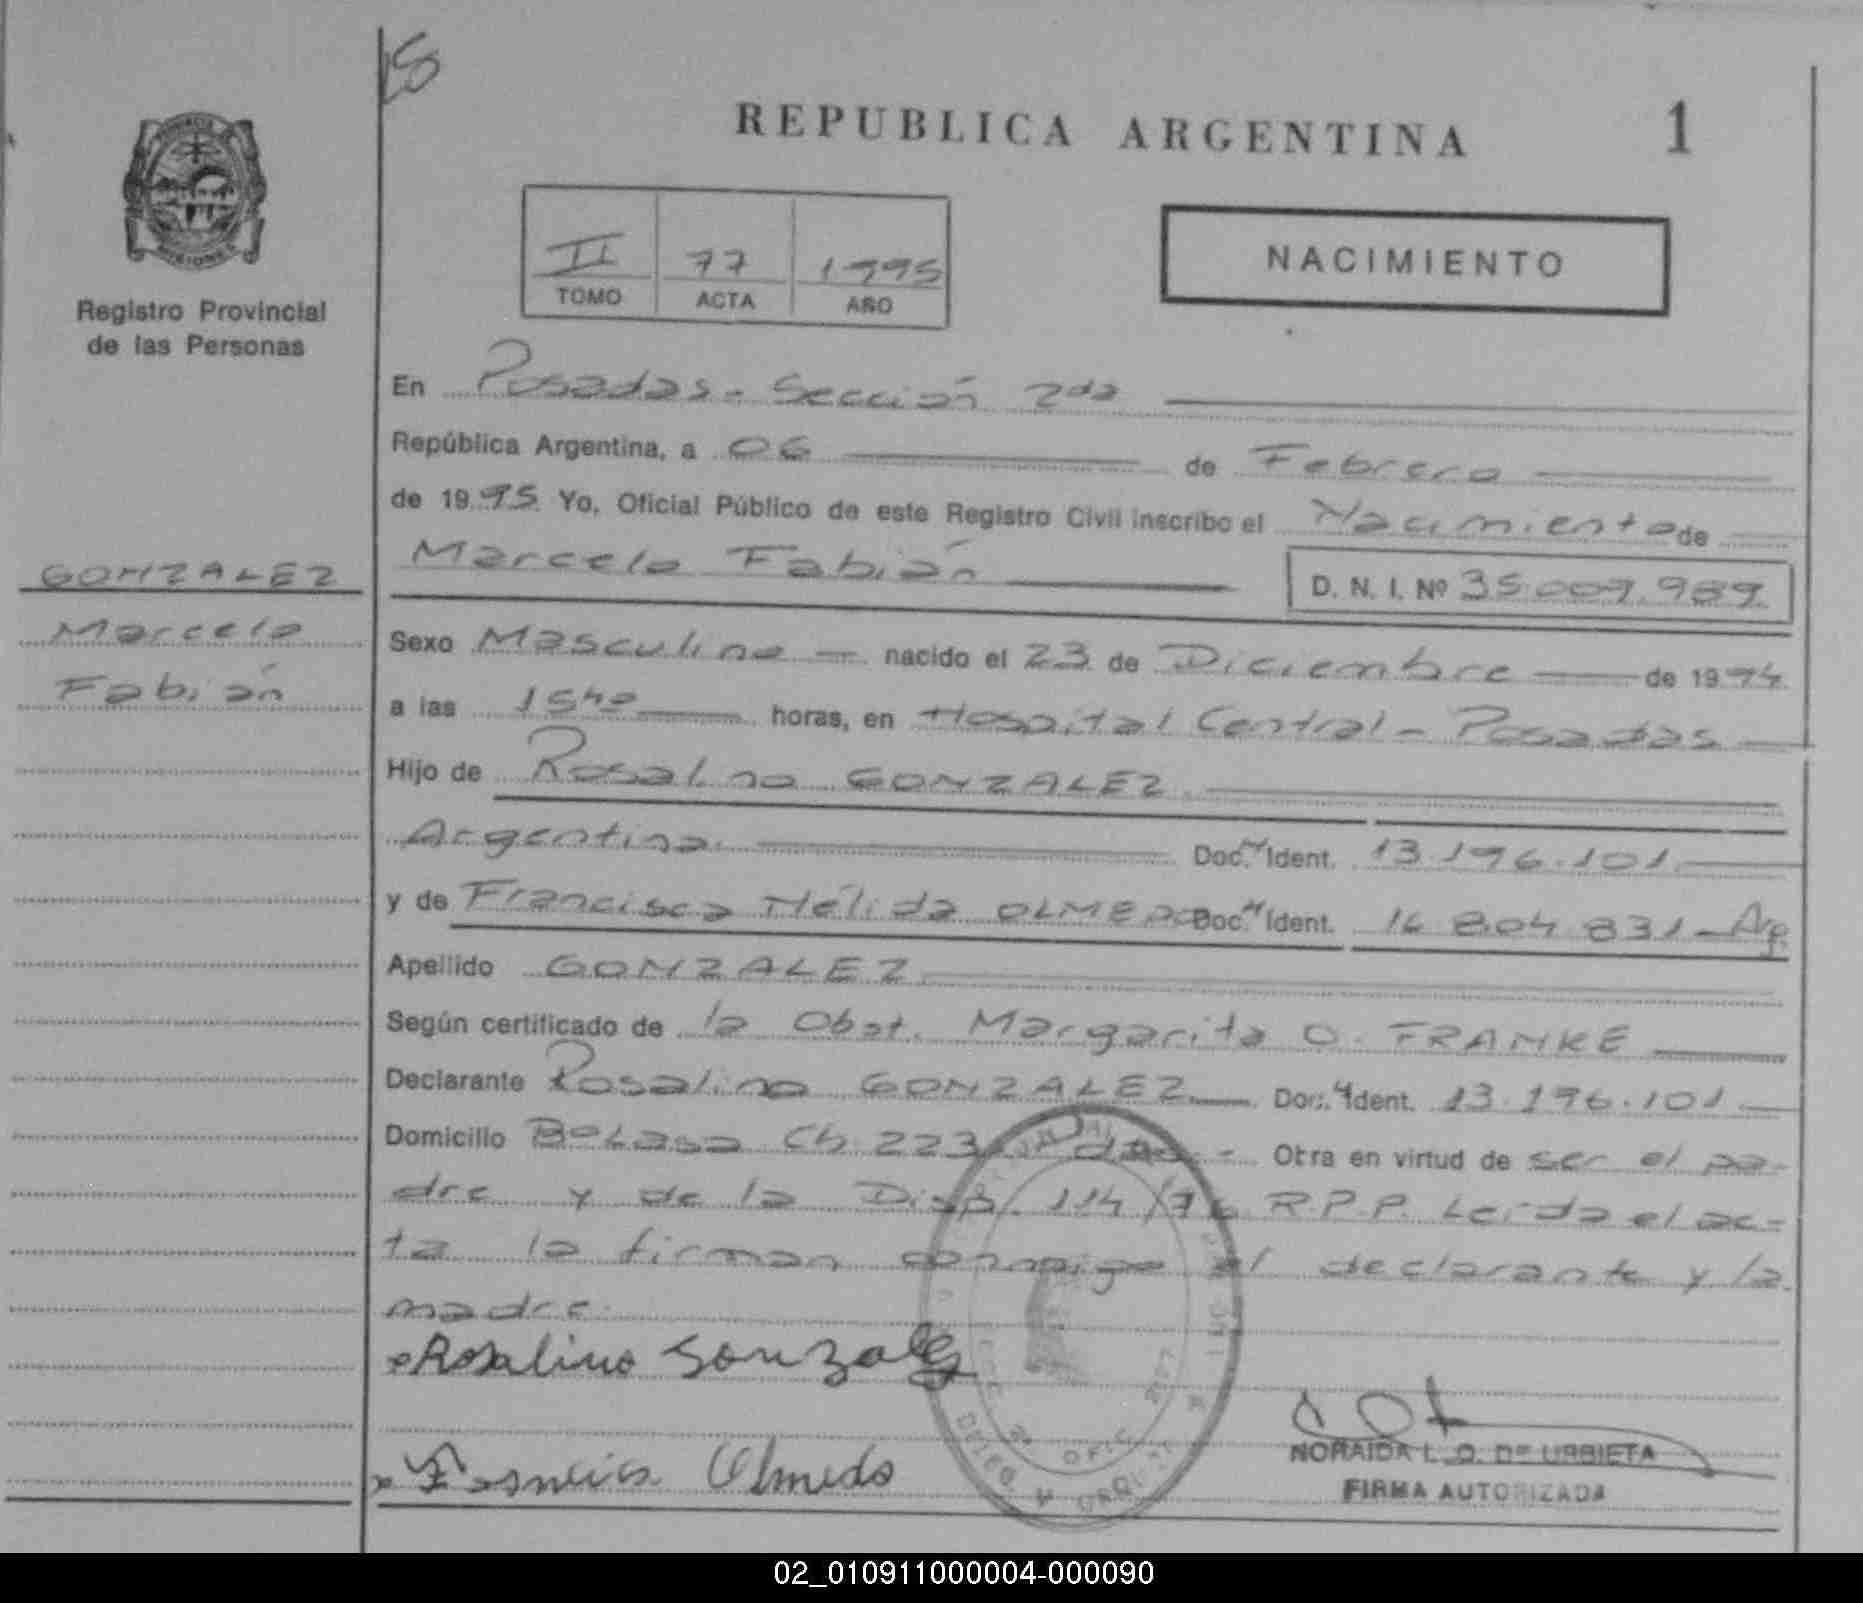 REPUBLICA ARGENTINA 1
Registro Provincial
de las Personas
II 77 1995
TOMO ACTA AÑO
NACIMIENTO
En Posadas - Sección 2da
República Argentina, a 06 de Febrero
de 1995 Yo, Oficial Público de este Registro Civil inscribo el Nacimiento de
Marcelo Fabián D. N. I. Nº 35.009.989.
GONZALEZ
Marcelo
Fabián
Sexo Masculino nacido el 23 de Diciembre de 1994
a las 15 horas, en Hospital Central - Posadas
Hijo de Rosalino GONZALEZ
Argentina Doc. Ident. 13.196.101
y de Francisca Nélida OLMEDO Doc. Ident. 16.804.831 - Arg.
Apellido GONZALEZ
Según certificado de la Obst. Margarita O. FRANKE
Declarante Rosalino GONZALEZ Doc. Ident. 13.196.101
Domicilio Ch. 223 Otra en virtud de ser el pa-
dre y de la Disp. 114/76 R.P.P. Leída el ac-
ta la firman conmigo el declarante y la
madre.
Rosalino Gonzalez
Francisca Olmedo
NORAIDA L. O. De URBIETA
FIRMA AUTORIZADA
02_010911000004-000090